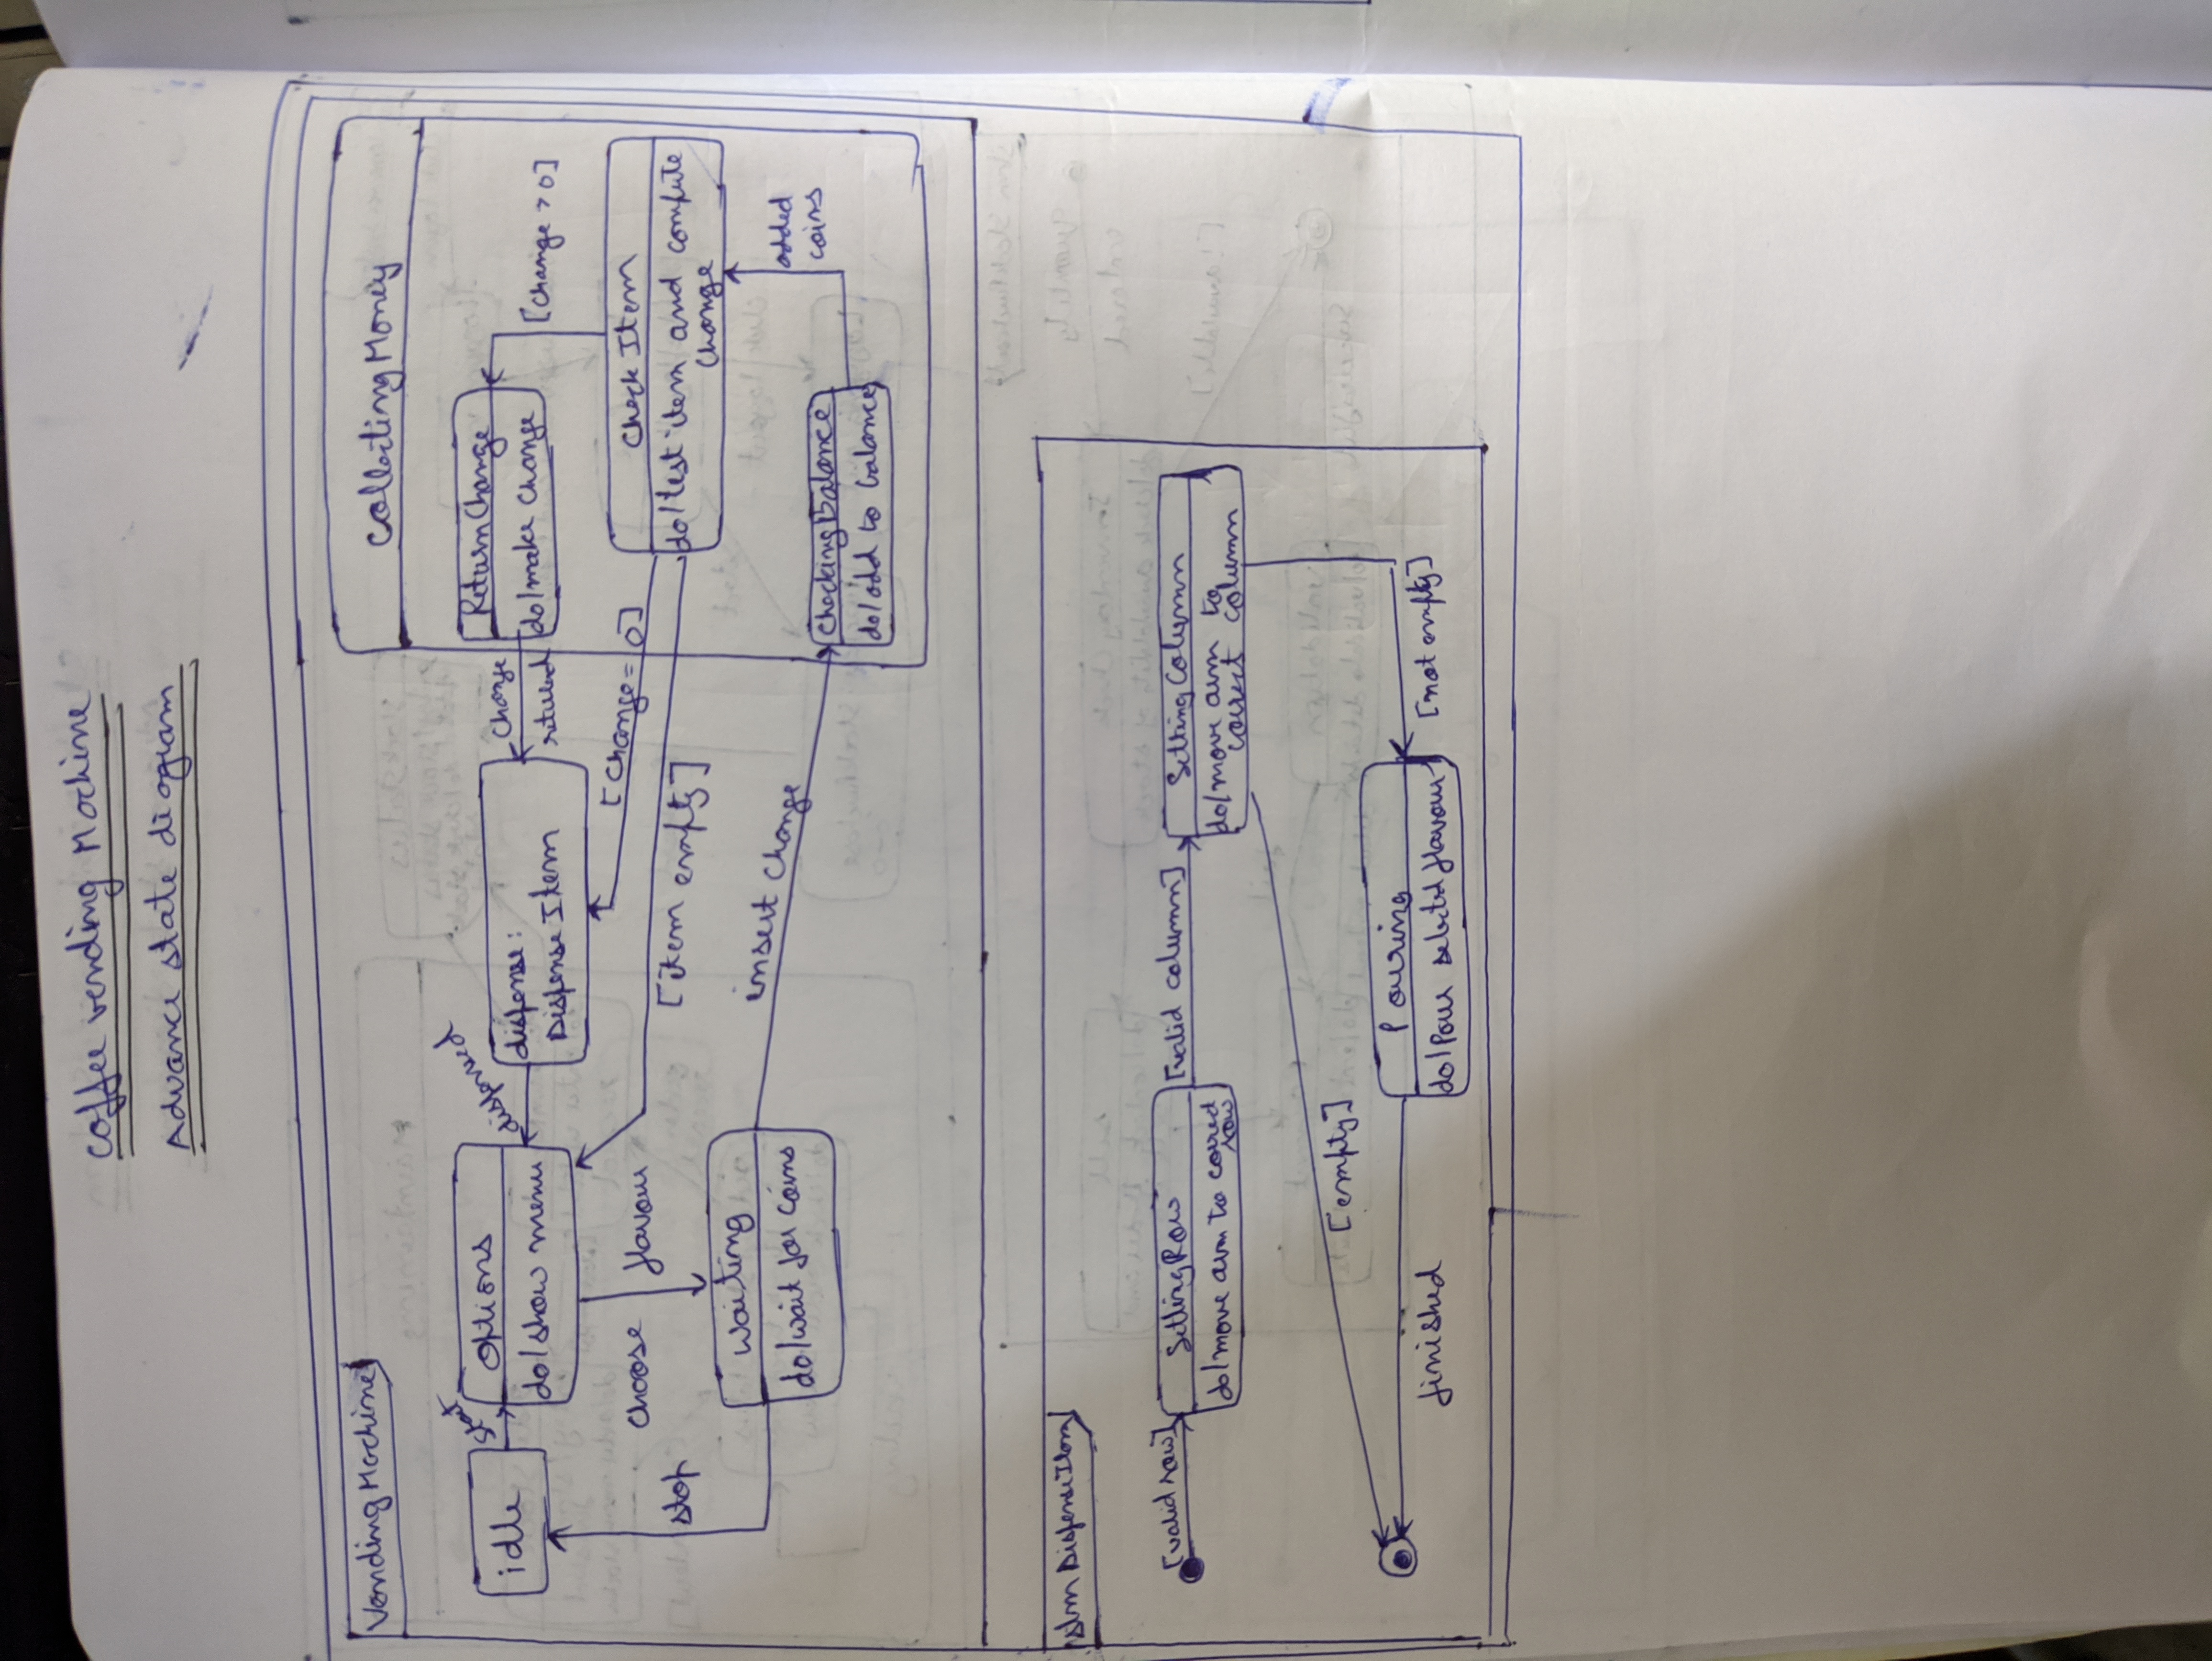 Coffee vending Machine
Advance state diagram
Vending Machine
Collecting Money
idle
start
Options
do/show menu
dispensed
dispense:
Dispense Item
Change
returned
Return Change
do/make change
[change > 0]
choose
flavour
stop
[change = 0]
[item empty]
Check Item
do/test item and compute
change
Waiting
do/wait for coins
insert change
added
coins
Checking Balance
do/add to balance
stm Dispense Item
[valid row]
Setting Row
do/move arm to correct
row
[valid column]
Setting Column
do/move arm to
correct column
[empty]
finished
Pouring
do/Pour selected flavour
[not empty]